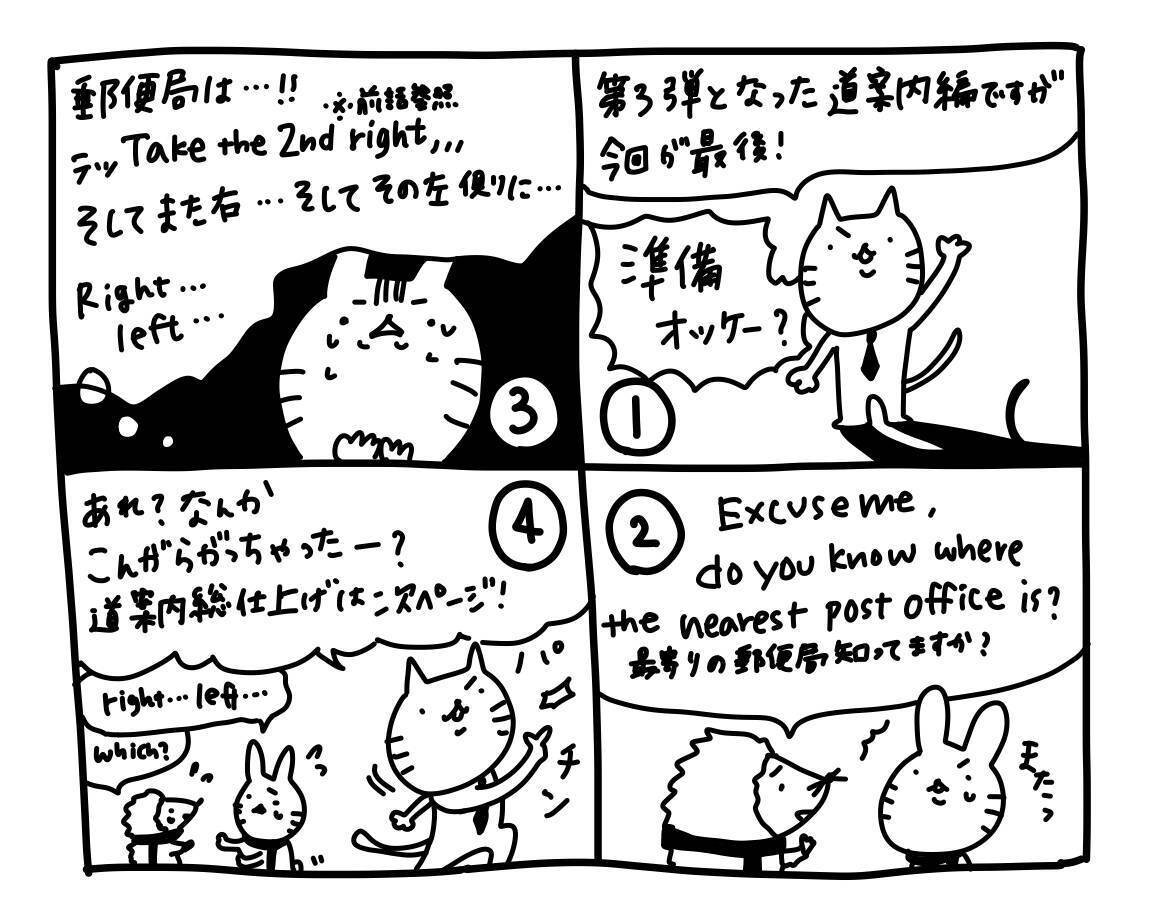 第3弾となった道案内編ですが
今回が最後!
準備
オッケー?
1
2
Excuse me,
do you know where
the nearest post office is?
最寄りの郵便局知ってますか?
またっ
郵便局は…!!
※前話参照
テッ Take the 2nd right,,,
そしてまた右…そしてその左側りに…
Right…
left…
3
4
あれ?なんか
こんがらがっちゃったー?
道案内総仕上げは次ページ!
right…left…
which?
パチン